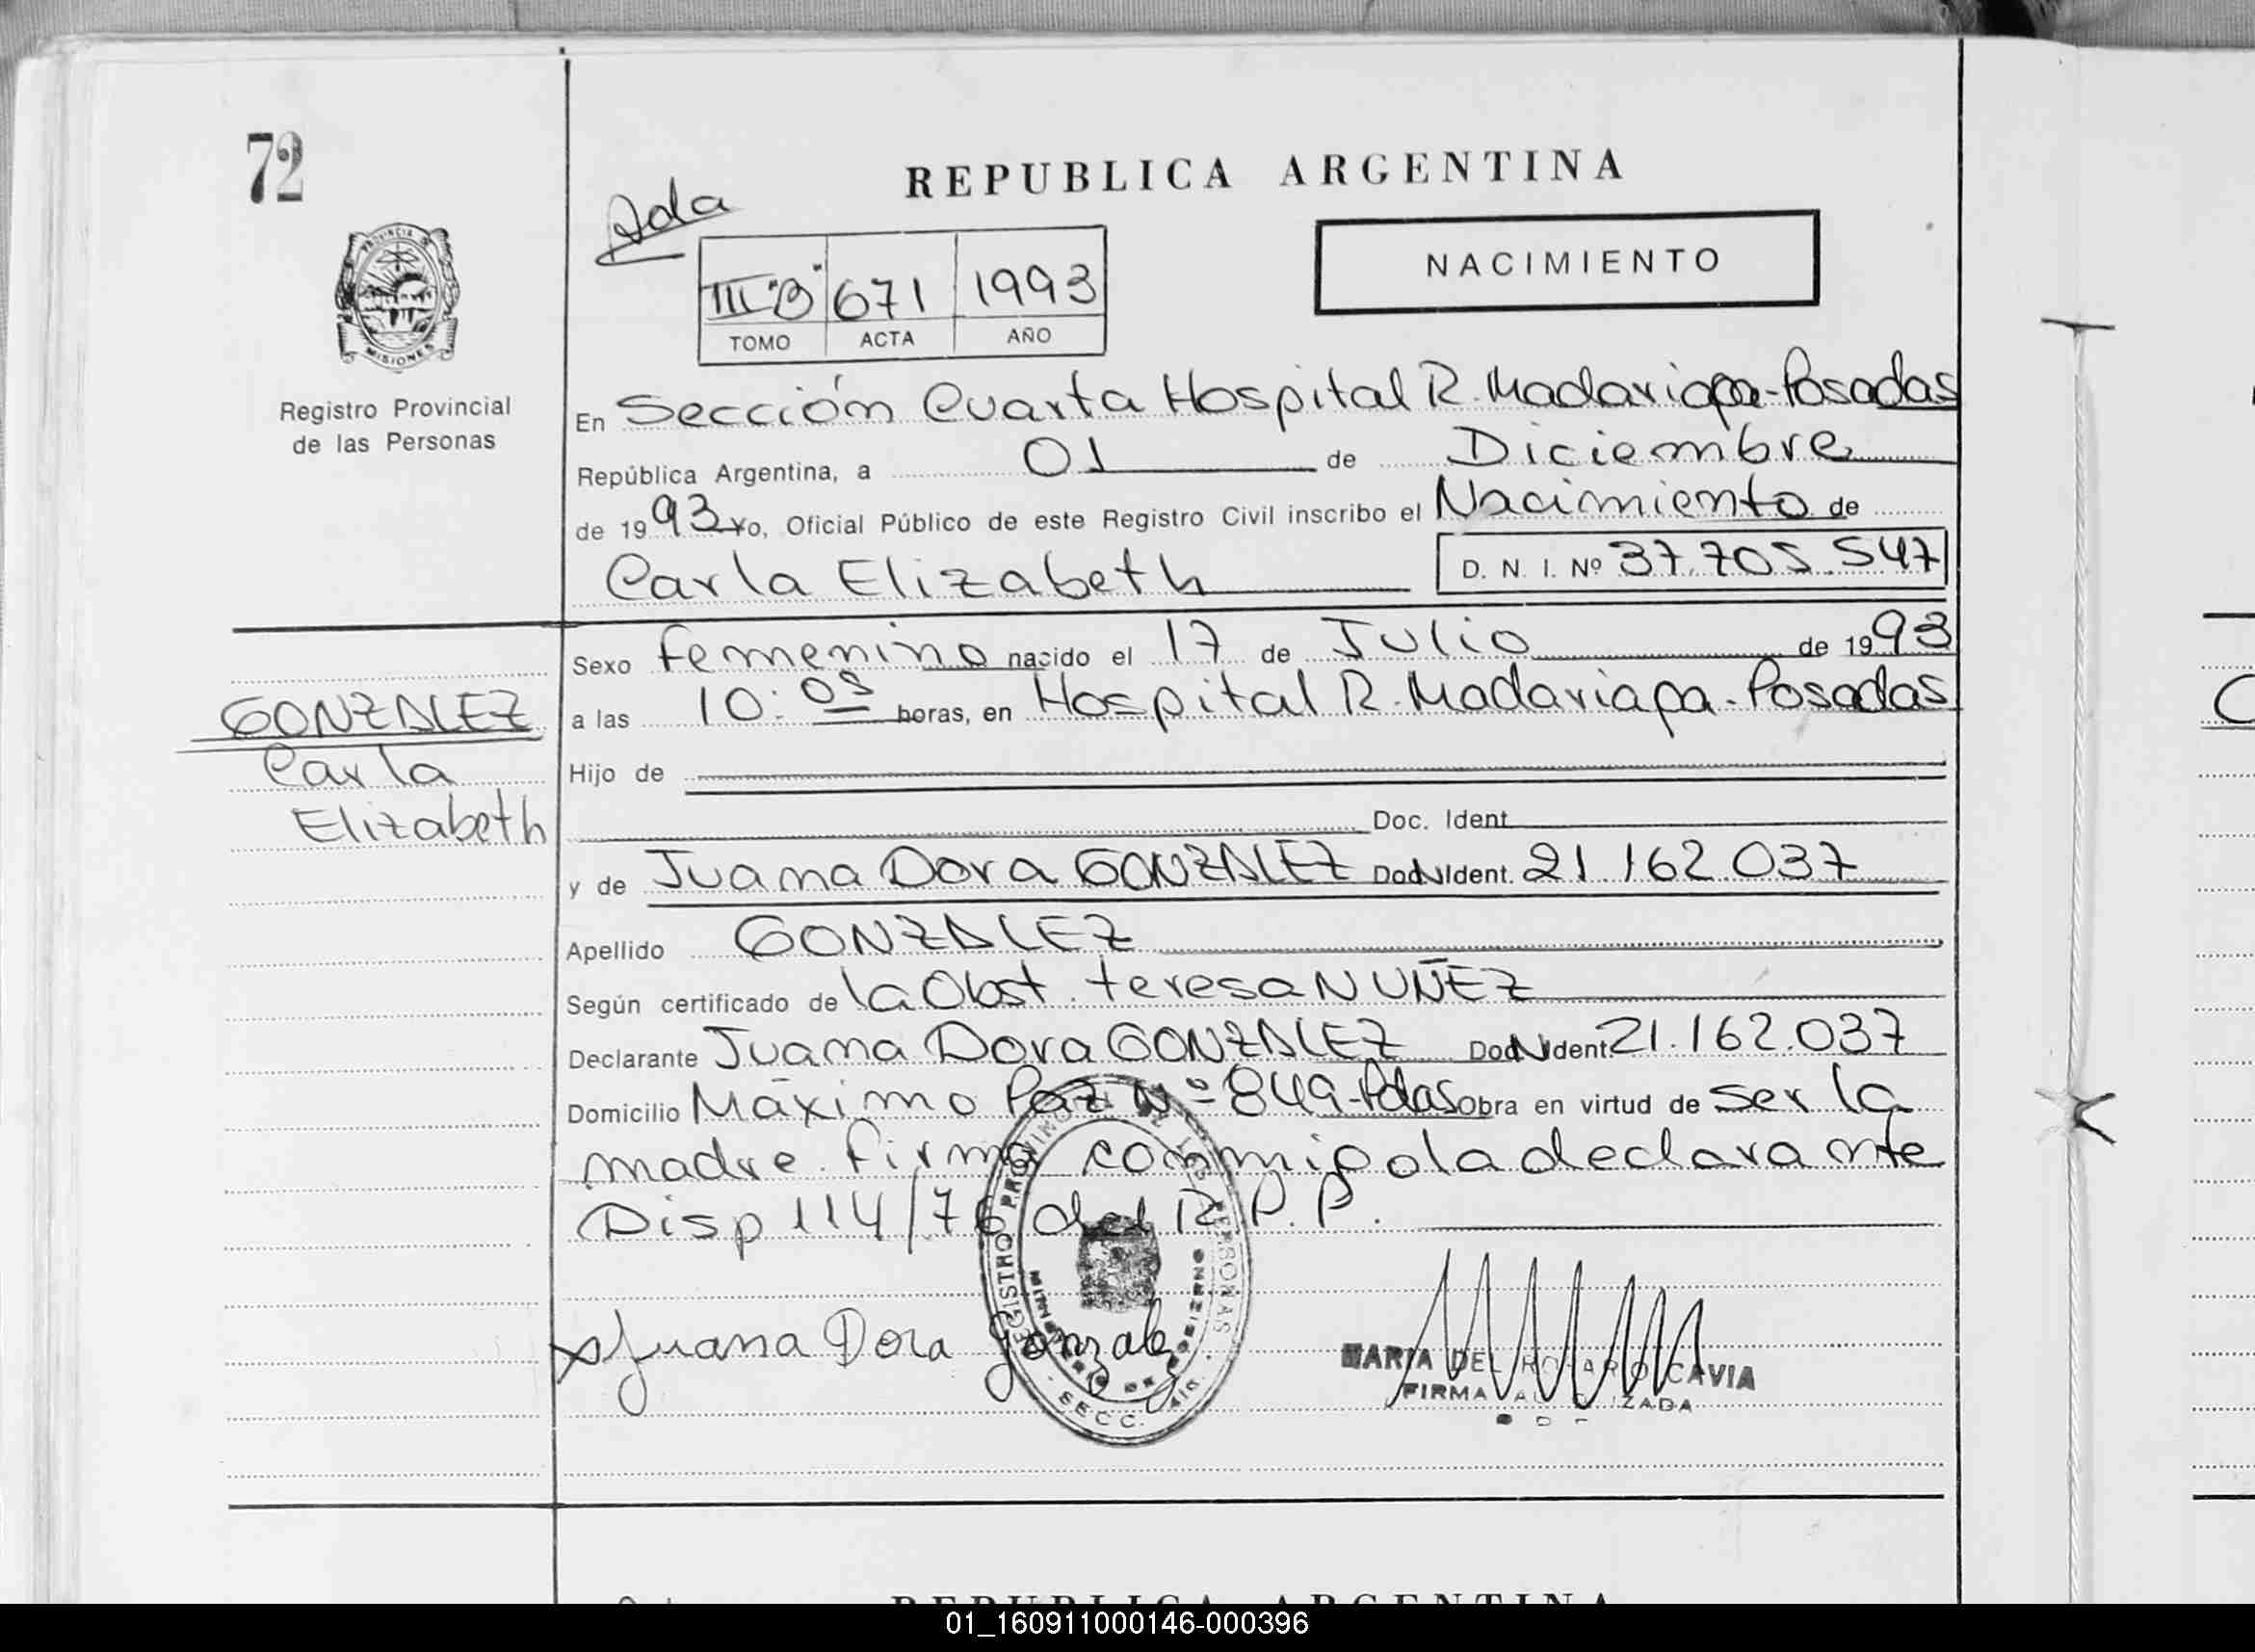 72
REPUBLICA ARGENTINA
Ada
NACIMIENTO
III "B" 671 1993
TOMO ACTA AÑO
PROVINCIA DE
MISIONES
Registro Provincial
de las Personas
En Sección Cuarta Hospital R. Madariaga-Posadas
República Argentina, a 01 de Diciembre
de 1993 yo, Oficial Público de este Registro Civil inscribo el Nacimiento de
Carla Elizabeth D. N. I. Nº 37.705.547
Sexo femenino nacido el 17 de Julio de 1993
GONZALEZ
Carla
Elizabeth
a las 10:05 horas, en Hospital R. Madariaga-Posadas
Hijo de
Doc. Ident.
y de Juana Dora GONZALEZ Doc. Ident. 21.162.037
Apellido GONZALEZ
Según certificado de la Obst. teresa NUÑEZ
Declarante Juana Dora GONZALEZ Doc. Ident. 21.162.037
Domicilio Máximo Paz Nº 849-Pdas Obra en virtud de ser la
madre. firma conmigo la declarante
Disp 114/76 del R.P.P.
REGISTRO PROVINCIAL DE LAS PERSONAS
MINISTERIO DE GOBIERNO
SECC. 4ta.
Juana Dora Gonzalez
MARIA DEL ROSARIO CAVIA
FIRMA AUTORIZADA
REPUBLICA ARGENTINA
01_160911000146-000396